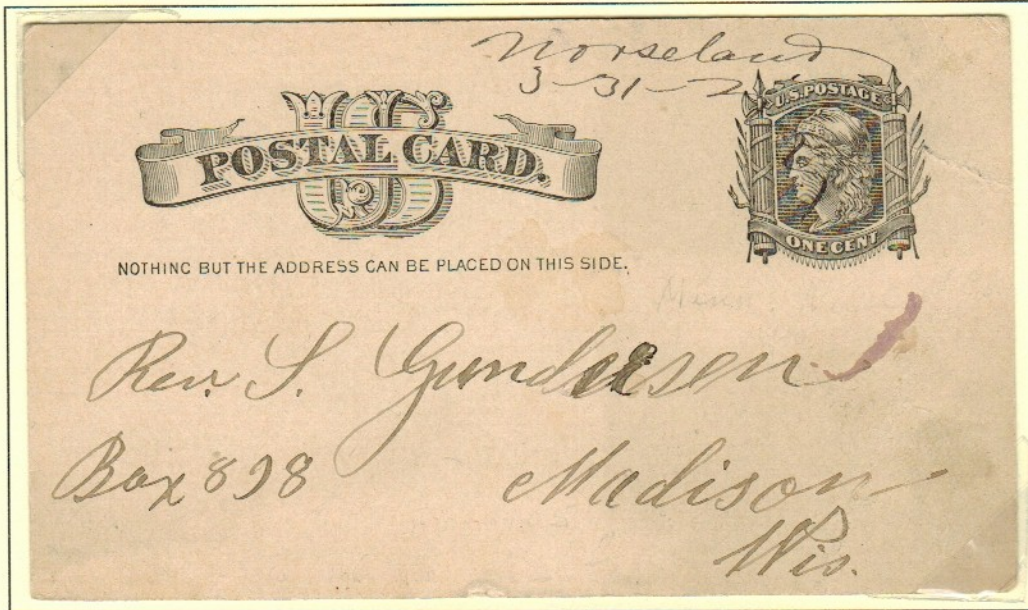 Norseland
3-31-
U.S. POSTAGE
US
POSTAL CARD.
ONE CENT
NOTHING BUT THE ADDRESS CAN BE PLACED ON THIS SIDE.
Rev. S. Gundersen
Box 898
Madison
Wis.